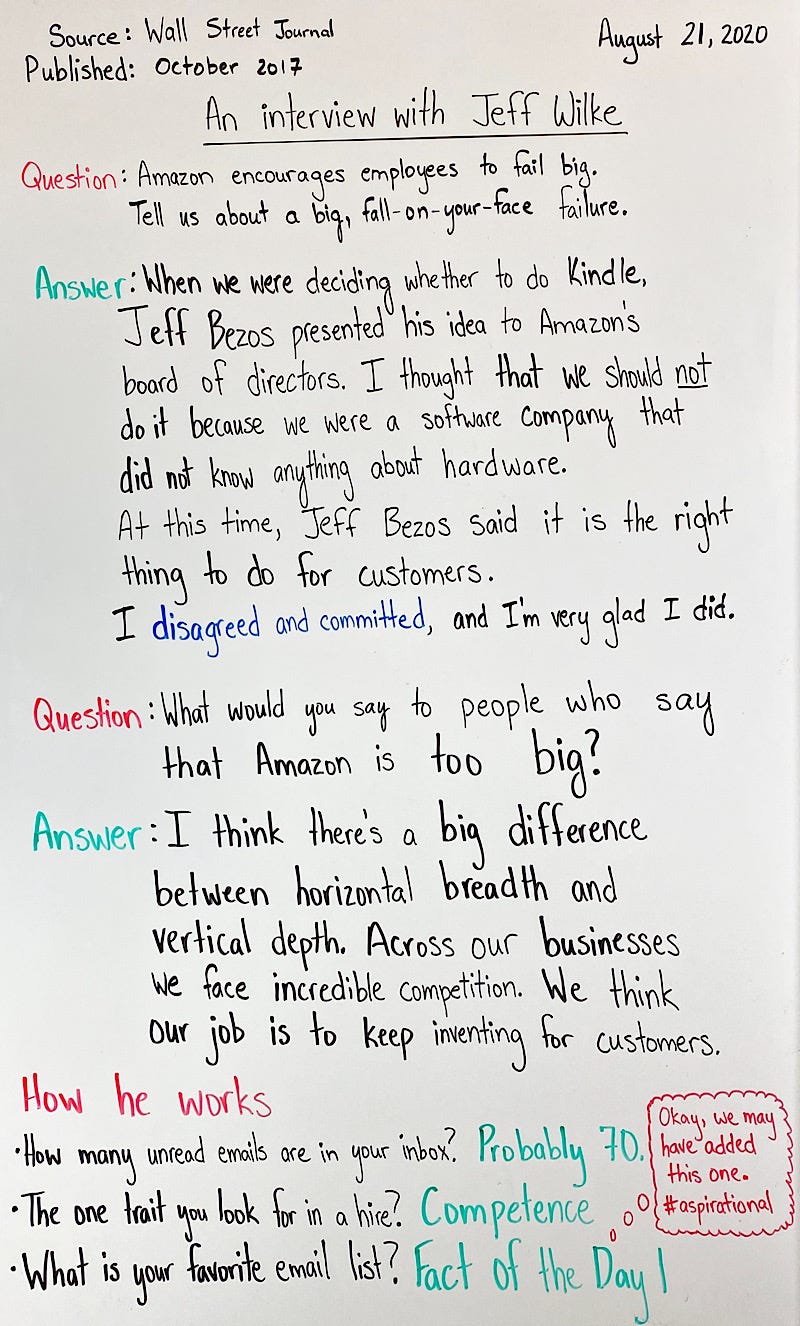 Source: Wall Street Journal
August 21, 2020
Published: October 2017
An interview with Jeff Wilke
Question: Amazon encourages employees to fail big.
Tell us about a big, fall-on-your-face failure.
Answer: When we were deciding whether to do Kindle,
Jeff Bezos presented his idea to Amazon's
board of directors. I thought that we should not
do it because we were a software company that
did not know anything about hardware.
At this time, Jeff Bezos said it is the right
thing to do for customers.
I disagreed and committed, and I'm very glad I did.
Question: What would you say to people who say
that Amazon is too big?
Answer: I think there's a big difference
between horizontal breadth and
vertical depth. Across our businesses
we face incredible competition. We think
our job is to keep inventing for customers.
How he works
•How many unread emails are in your inbox? Probably 70.
•The one trait you look for in a hire? Competence
•What is your favorite email list? Fact of the Day 1
Okay, we may
have added
this one.
#aspirational